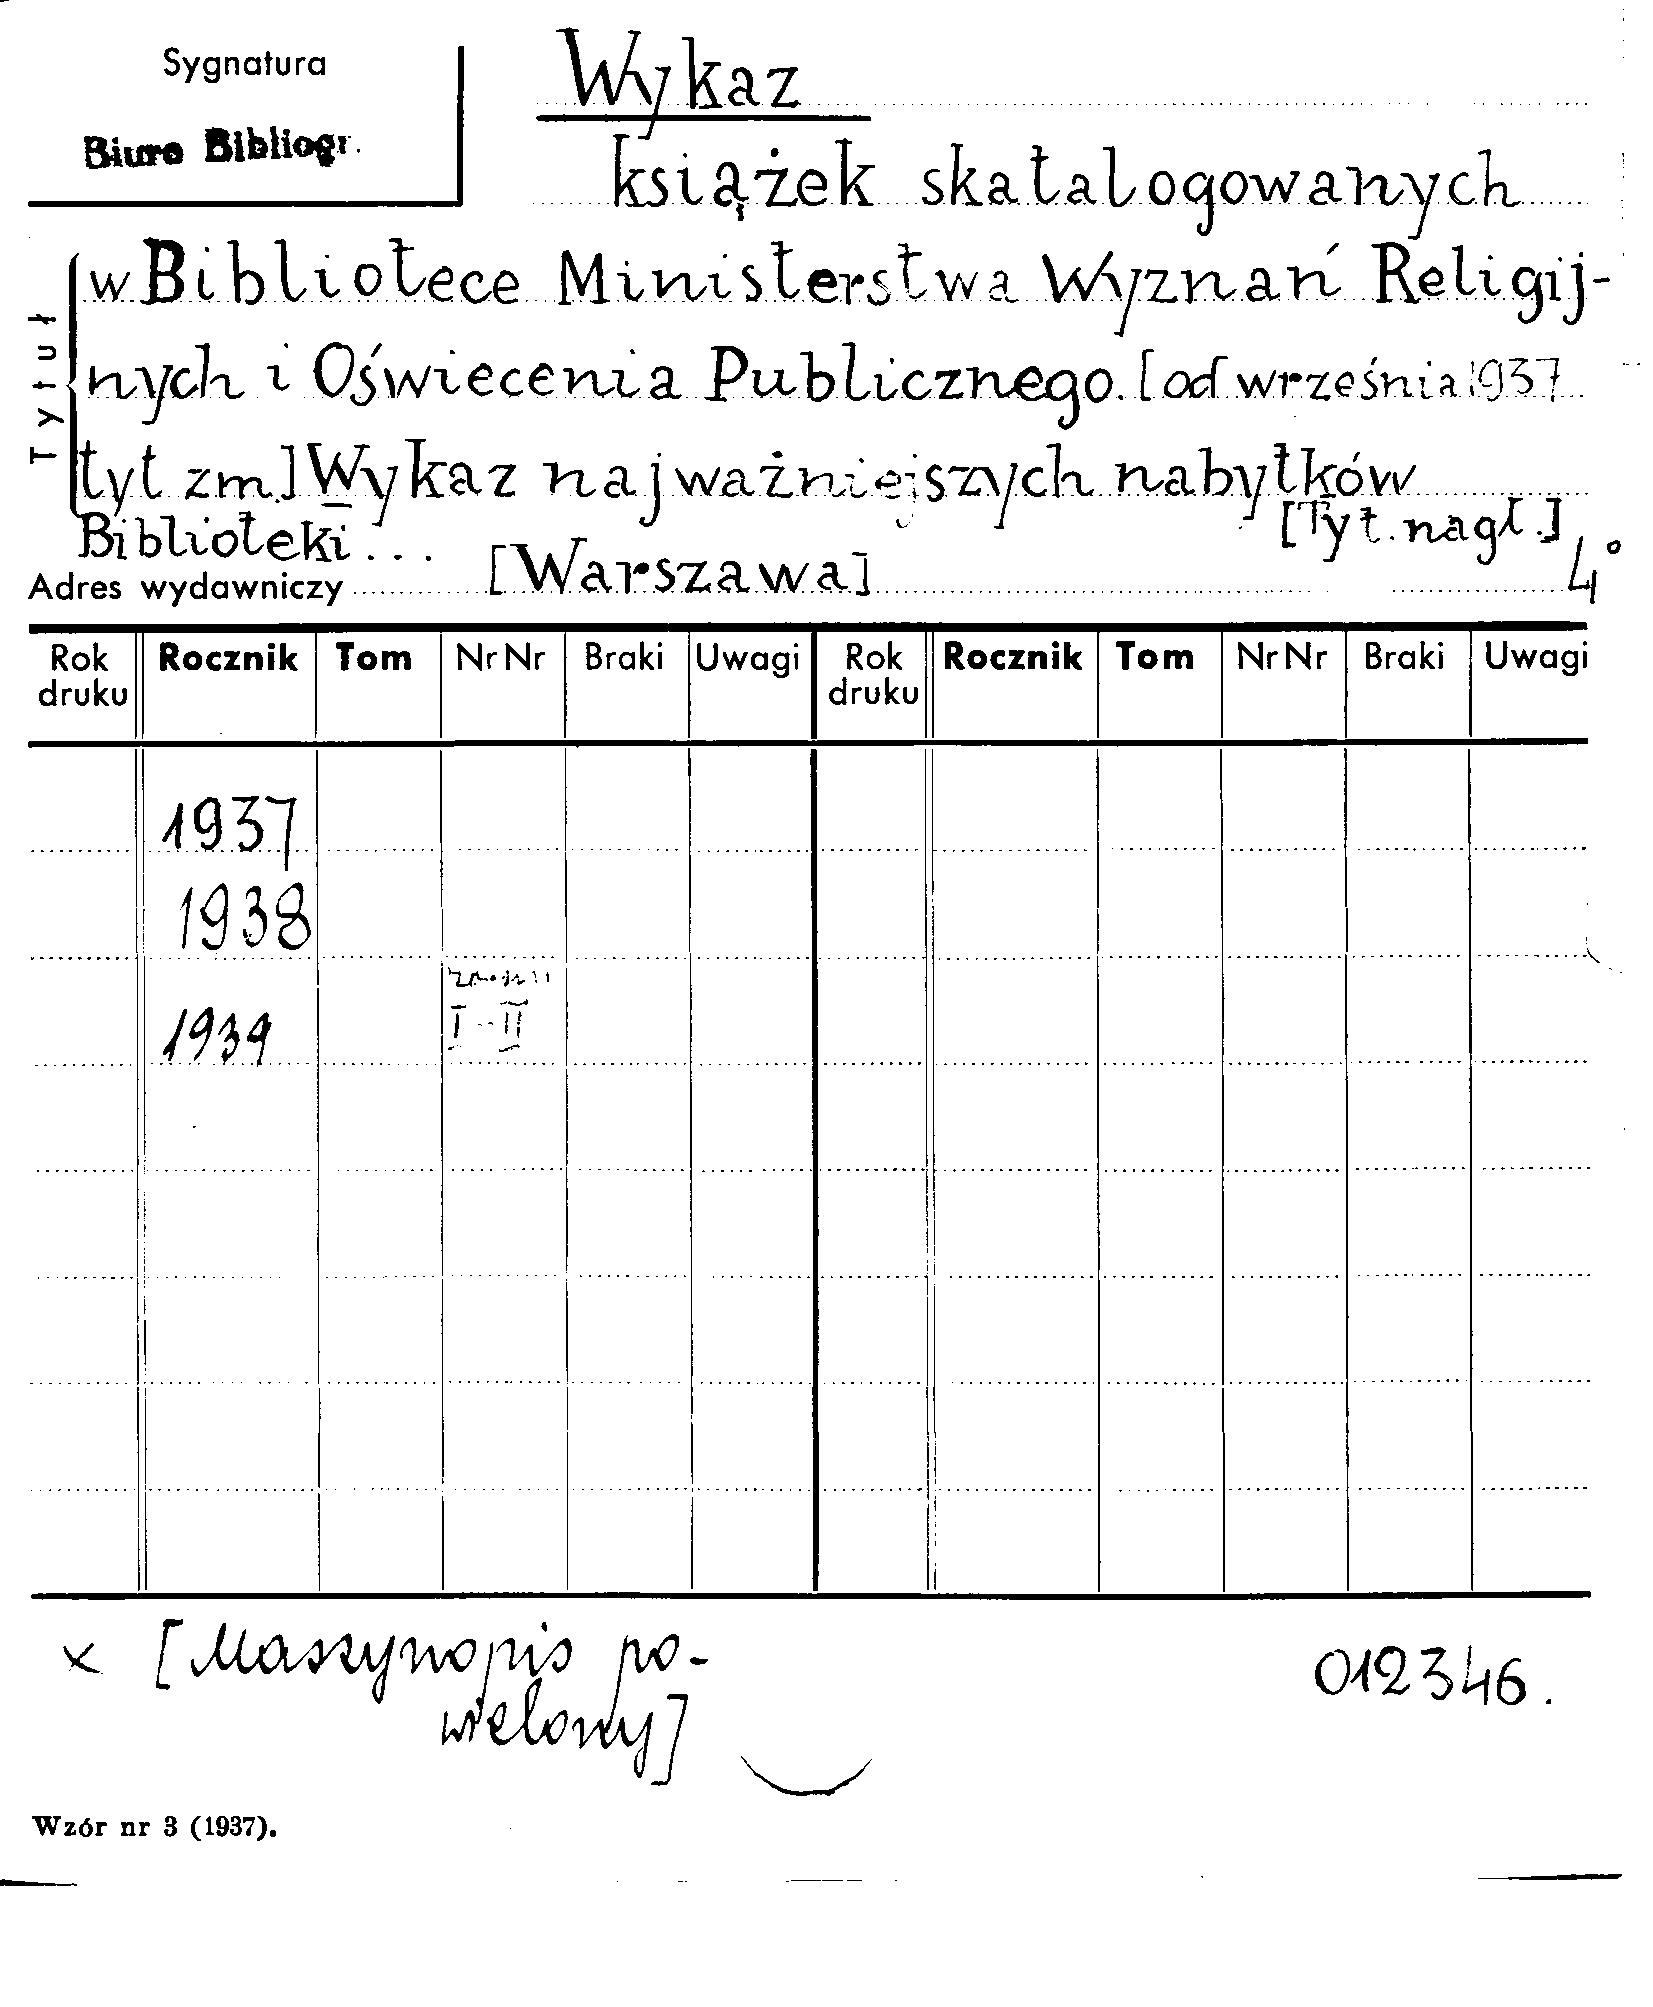 Sygnatura
Biuro Bibliogr.
Wykaz
książek skatalogowanych
w Bibliotece Ministerstwa Wyznań Religij-
nych i Oświecenia Publicznego. [od września 1937
tyt zm.] Wykaz najważniejszych nabytków
Biblioteki... [Tyt. nagł.]
Tytuł
Adres wydawniczy [Warszawa] 4°
Rok druku Rocznik Tom Nr Nr Braki Uwagi Rok druku Rocznik Tom Nr Nr Braki Uwagi
1937
1938
1939 I-II
x [Maszynopis po-
wielony]
012346.
Wzór nr 3 (1937).